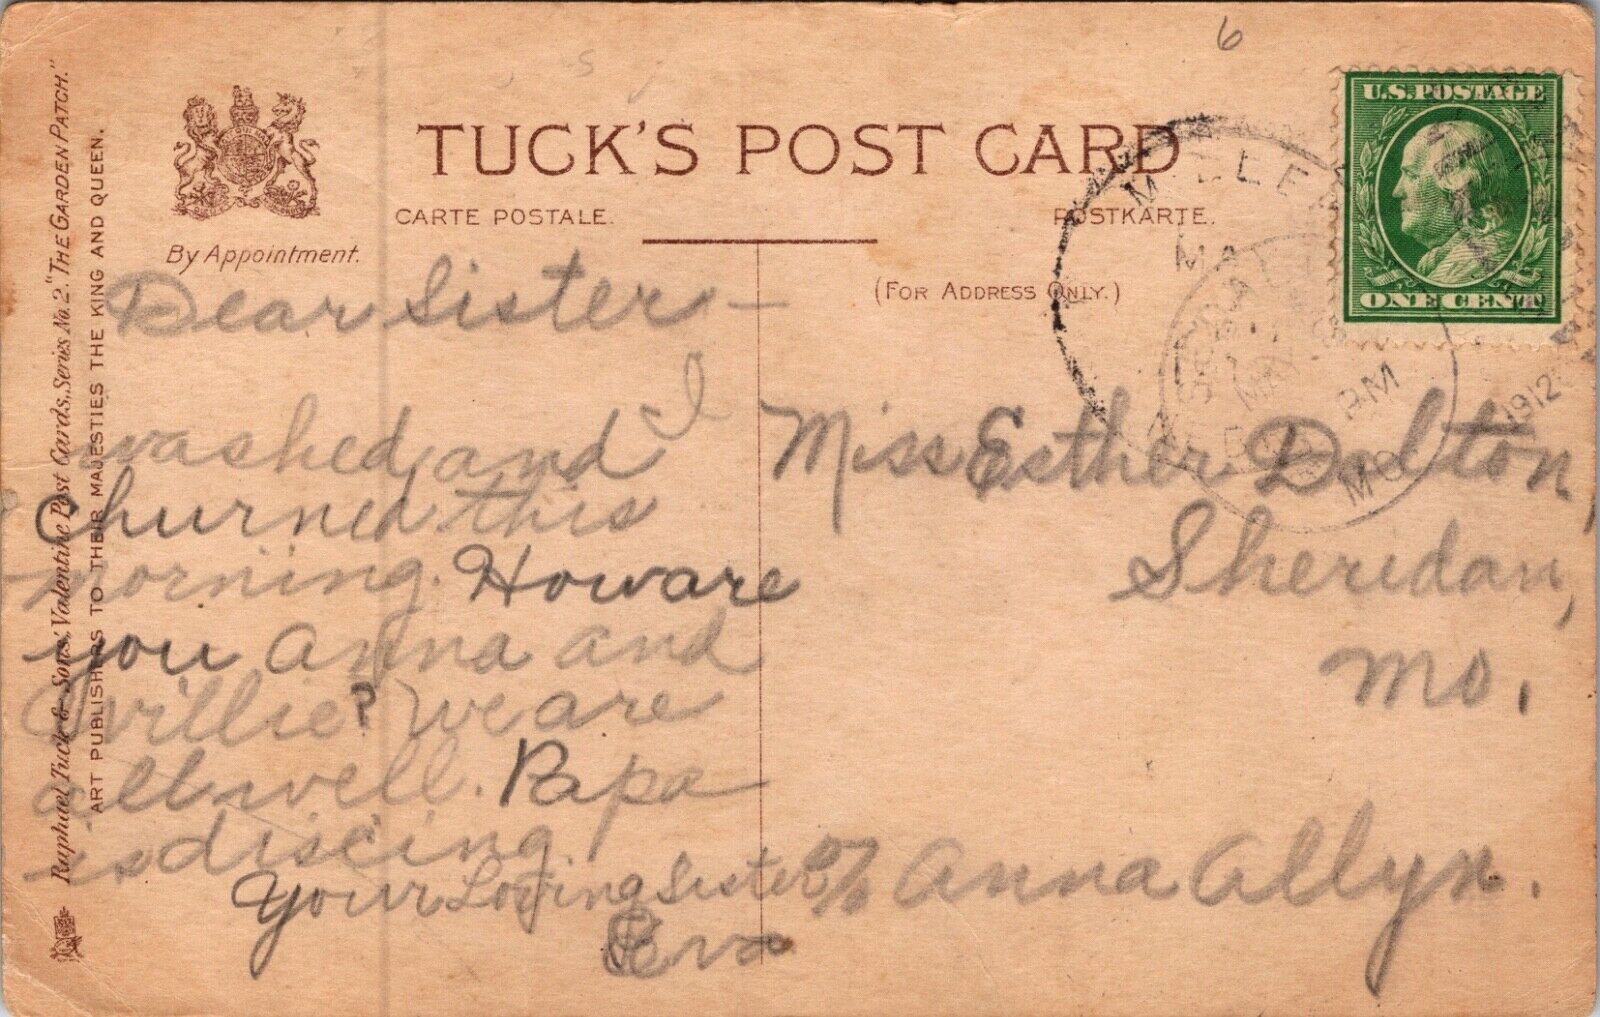 6
TUCK'S POST CARD
CARTE POSTALE. POSTKARTE.
By Appointment.
(FOR ADDRESS ONLY.)
U.S. POSTAGE
ONE CENT
MAY PM
1912
MO
Raphael Tuck & Sons' Valentine Post Cards. Series No. 2. "THE GARDEN PATCH."
ART PUBLISHERS TO THEIR MAJESTIES THE KING AND QUEEN.
Dear Sister –
I
washed and
churned this
morning. How are
you anna and
Willie? We are
all well. Papa
is discing.
Your Loving Sister
Eva
Miss Esther Dalton,
Sheridan,
Mo.
c/o Anna Allyn.